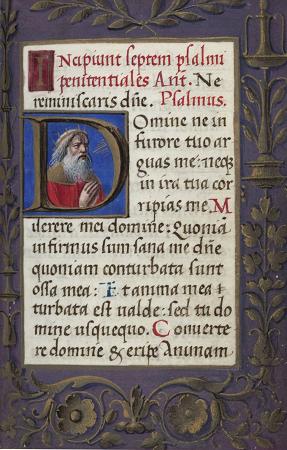 INcipiunt septem psalmi
penitentiales Ant. Ne
reminiscaris dñe. Psalmus.
Domine ne in
furore tuo ar
guas me: neqȝ
in ira tua cor
ripias me. M
iserere mei domine: Quonia
infirmus sum sana me dñe
quoniam conturbata sunt
ossa mea: Et anima mea t
turbata est ualde: sed tu do
mine usquequo. Conuerte
re domine & eripe Animam